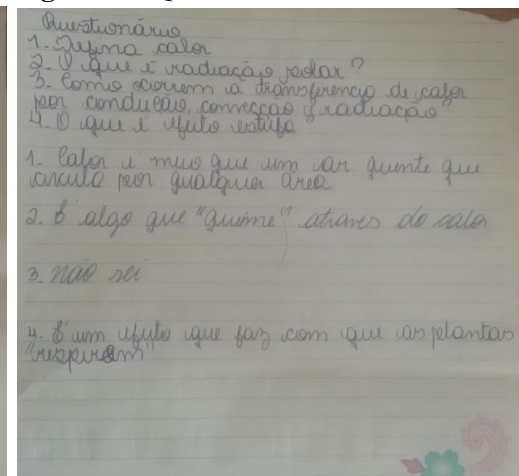 Questionário
1. Defina calor
2. O que é radiação solar?
3. Como ocorrem a transferência de calor
por condução, convecção e radiação
4. O que é efeito estufa
1. Calor é meio que um ar quente que
circula por qualquer área
2. É algo que "queime" através do calor
3. não sei
4. É um efeito que faz com que as plantas
"respirem"